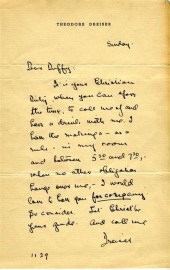 THEODORE DREISER
Sunday.
Dear Duffy:
It is your Christian
duty, when you can afford
the time, to call me up and
have a drink with me. I
have the makings - as a
rule - in my room
and between 5 30 and 7 30,
when no other obligation
hangs over me, - I would
love to have you for company
So consider. Let Christ be
your guide. And call me
Dreiser